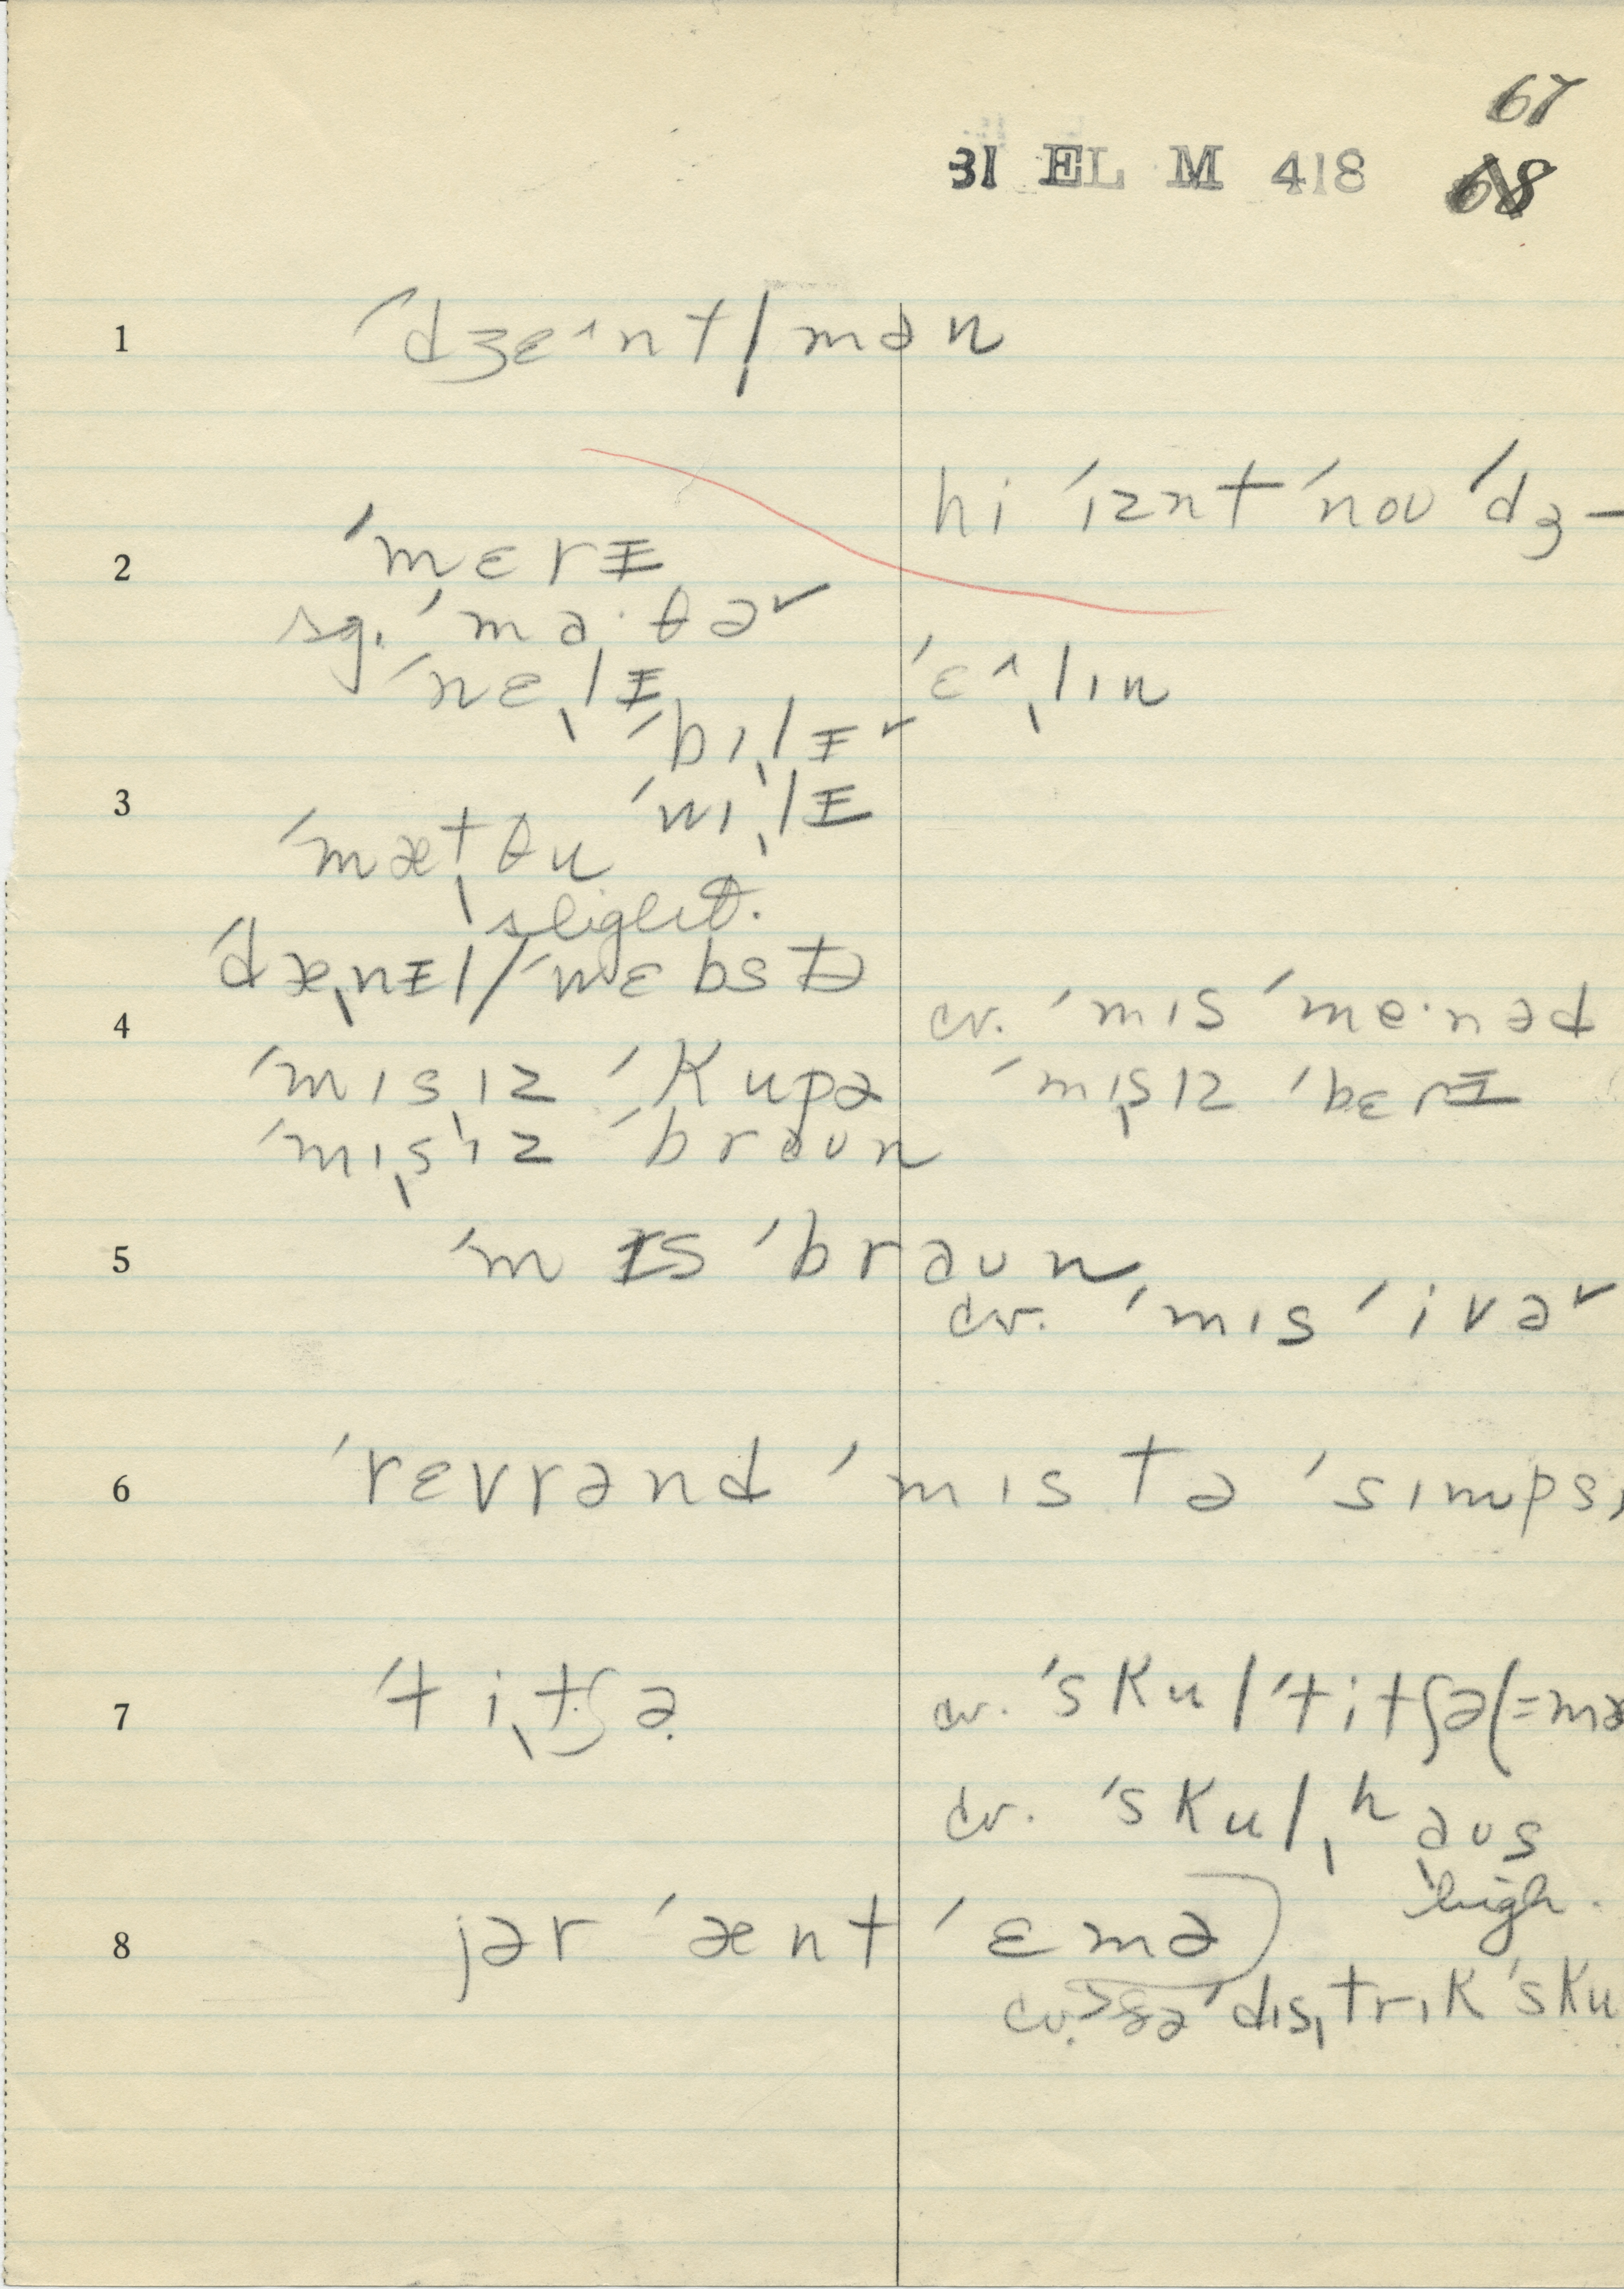 67
31 EL M 418 68
1 ˈdʒɛ˄nt|̩mən
hi ˈɪznt ˈnoʊ ˈdʒ–
2 ˈmɛrᵻ
sg. ˈmɑ·θə˅
ˈnɛˌlᵻ ˈɛ˄ˌlɪn
ˈbɪˌlᵻ˅
3 ˈwɪˌlᵻ
ˈmæˌtθu
slight.
ˈdæˌnᵻl/ˈwɛbstə
4 cv. ˈmɪs ˈme·nəd
ˈmɪsˌɪz ˈkupə ˈmɪˌsɪz ˈbɛrᵻ
ˈmɪˌsɪz ˈbraʊn
5 ˈmɪs ˈbraʊn
cv. ˈmɪs ˈivə˅
6 ˈrɛvrənd ˈmɪstə ˈsɪmps
7 ˈtiˌtʃə cv. ˈskul ˈtitʃə (=mæ
cv. ˈskulˌhaʊs
high.
8 jər ˈænt ˈɛmə
cv. > ðə ˈdɪsˌtrɪk ˈsku